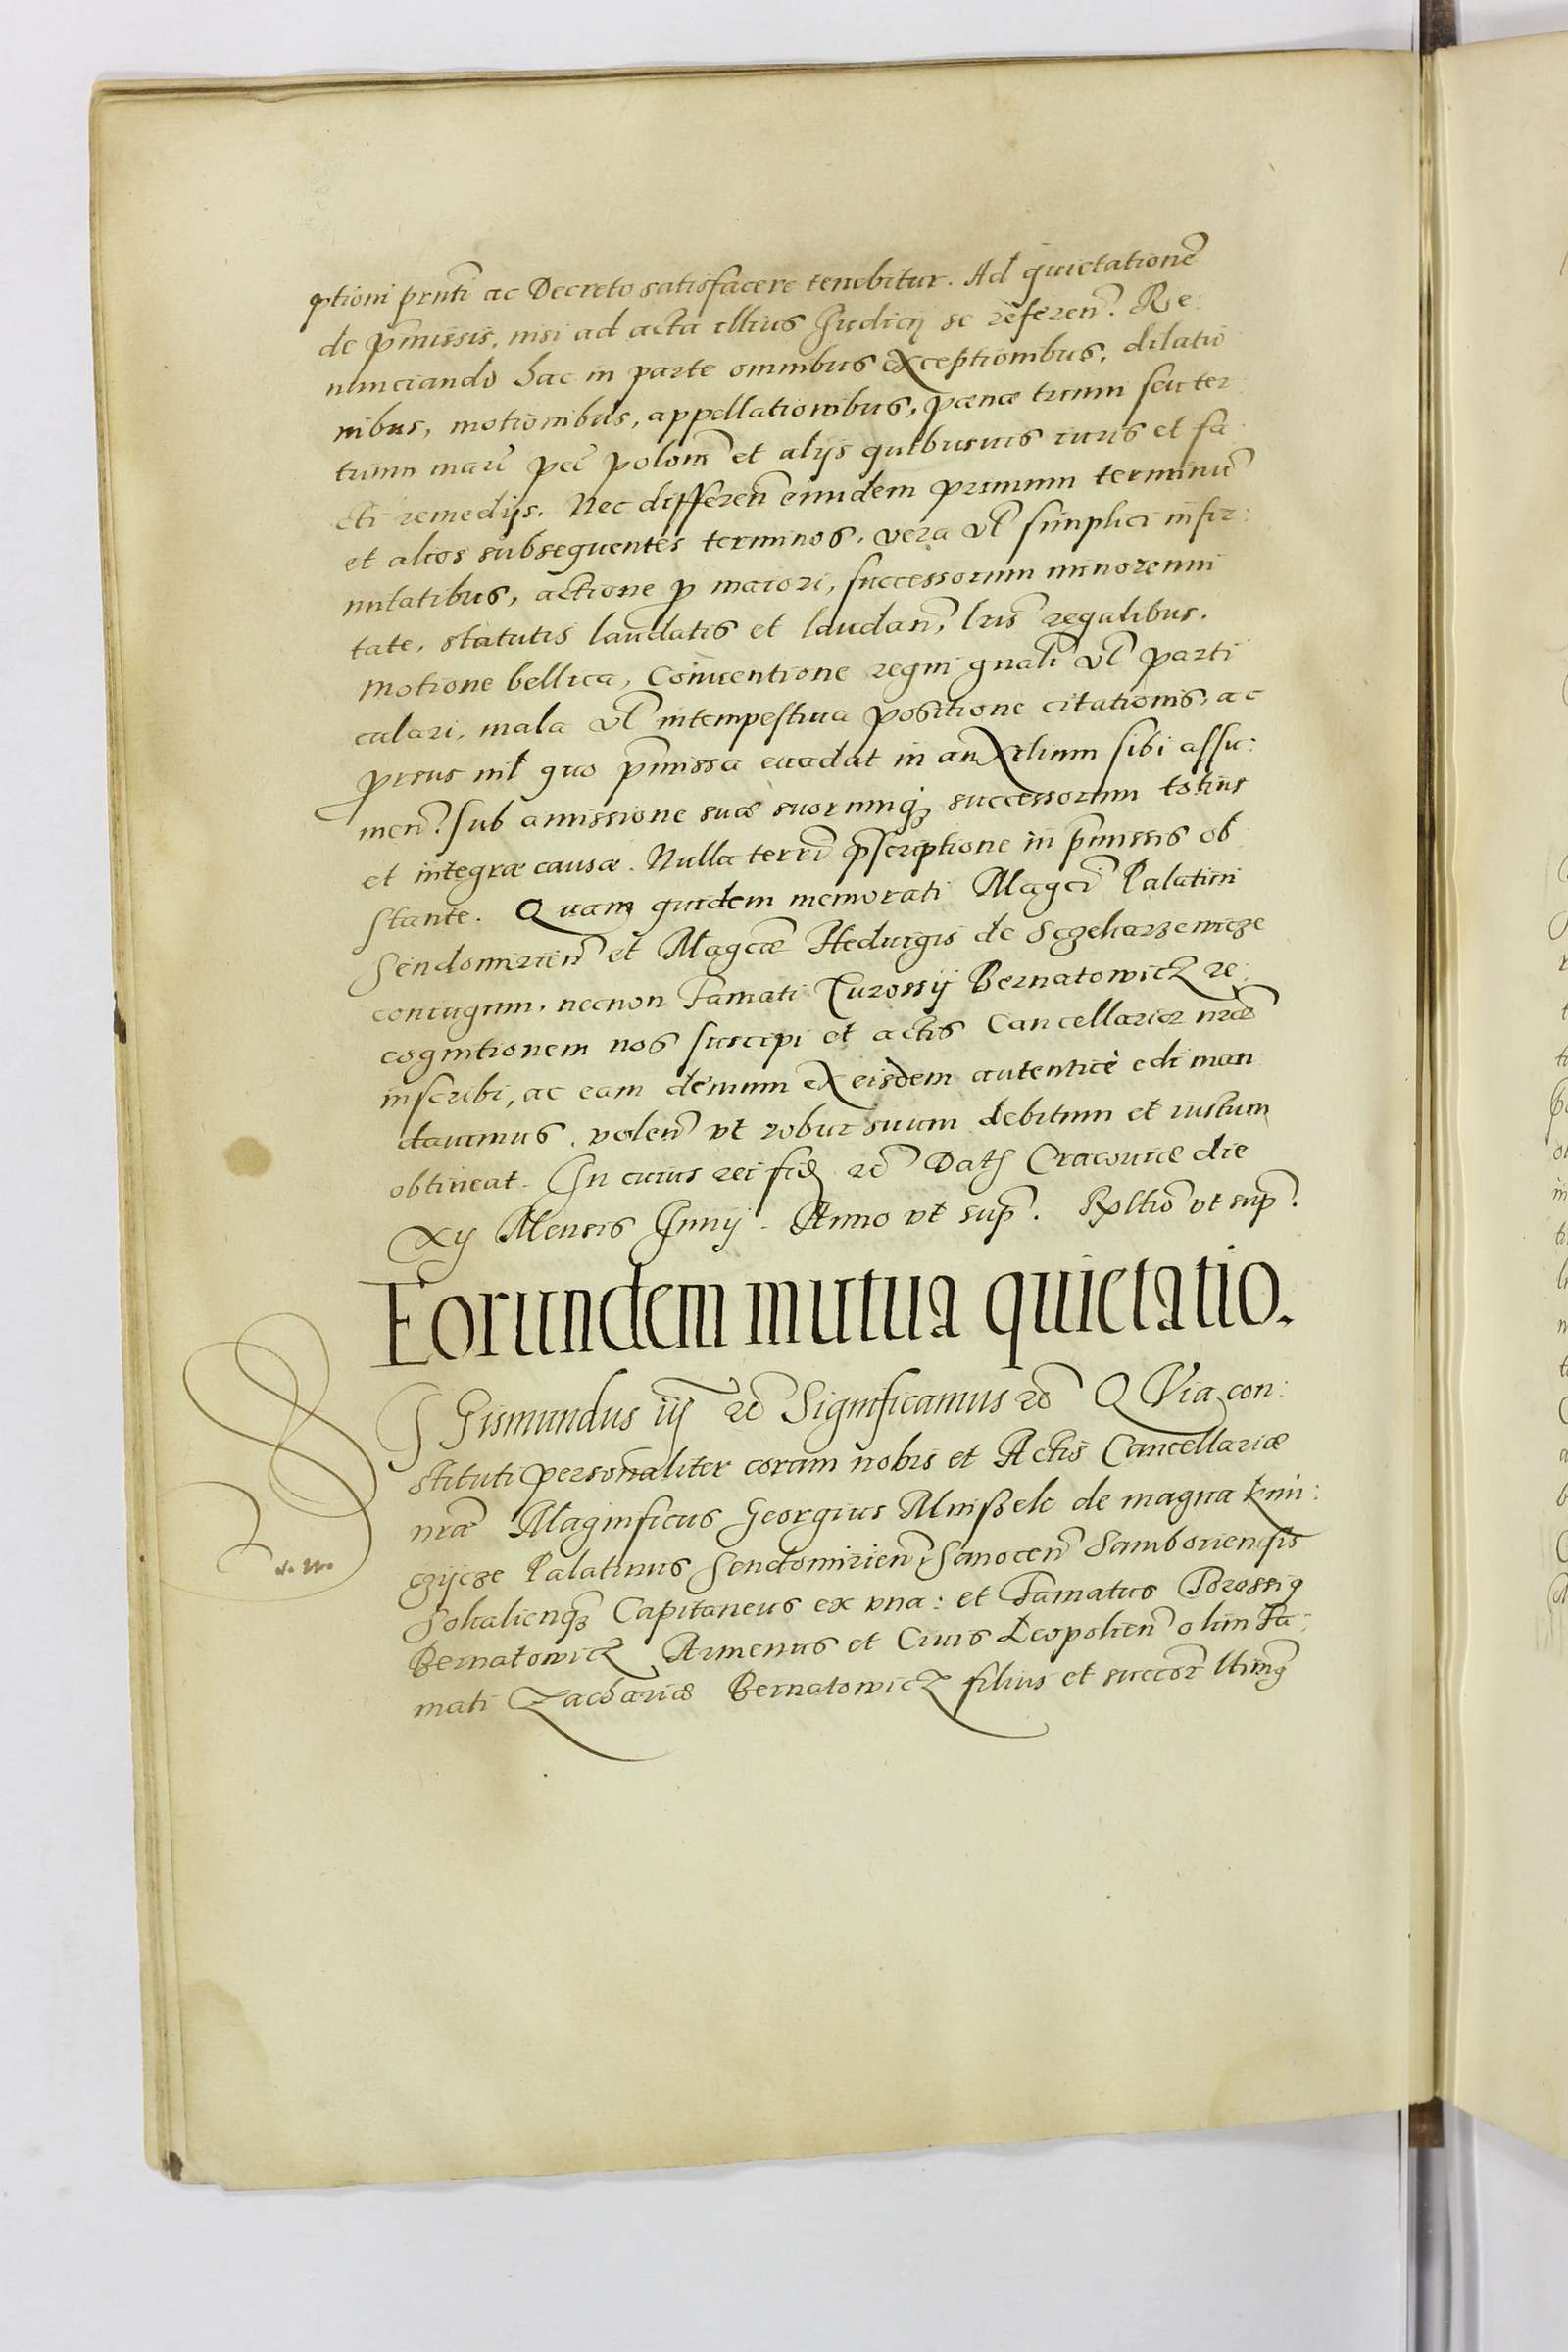 ptioni prnti ac Decreto satisfacere tenebitur. Ad quietatione
de pmissis, nisi ad acta illius Judicij se referen. Re:
nunciando hac in parte omnibus exceptionibus, dilatio
nibus, motionibus, appellationibus, pænæ trium seu ter
trium mar pec polon et alijs quibusuis iuris et fa
cti remedijs. Nec differen eiusdem primum terminu
et alios subsequentes terminos, vera vl simplici infir:
mitatibus, actione p maiori, successorum minorenni
tate, statutis laudatis et laudan, lris regalibus.
Motione bellica, Conuentione regni gnali vl parti
culari, mala vl intempestiua positione citationis, ac
prorsus nil quo pmissa euadat in auxilium sibi assu:
men? sub amissione suæ suorumq; successorum totius
et integræ causæ. Nulla terri pscriptione in pmissis ob
stante. Quam quidem memorati Magci Palatini
Sendomirien et Magcæ Heduigis de Sczekarzewicze
coniugum, necnon Famati Turossij Bernatowicz re:
cognitionem nos suscipi et actis Cancellariæ nræ
inscribi, ac eam demum ex eisdem autenticè edi man
dauimus, volen vt robur suum debitum et iustum
obtineat. In cuius rei fid rc Dat Cracouiæ die
xij Mensis Junij. Anno vt sup. Rltio vt sup.
Eorundem mutua quietatio.
SIGismundus iij rc Significamus rc QVia con:
stituti personaliter coram nobis et Actis Cancellariæ
nræ Magnificus Georgius Mnißek de magna Kuni:
czijcze Palatinus Sendomirien, Sanocen Samboriensis
Sokalienq; Capitaneus ex vna: et Famatus Torossig
Bernatowicz Armenus et Ciuis Leopolien olim Fa:
mati Zachariæ Bernatowicz filius et succor ltimg